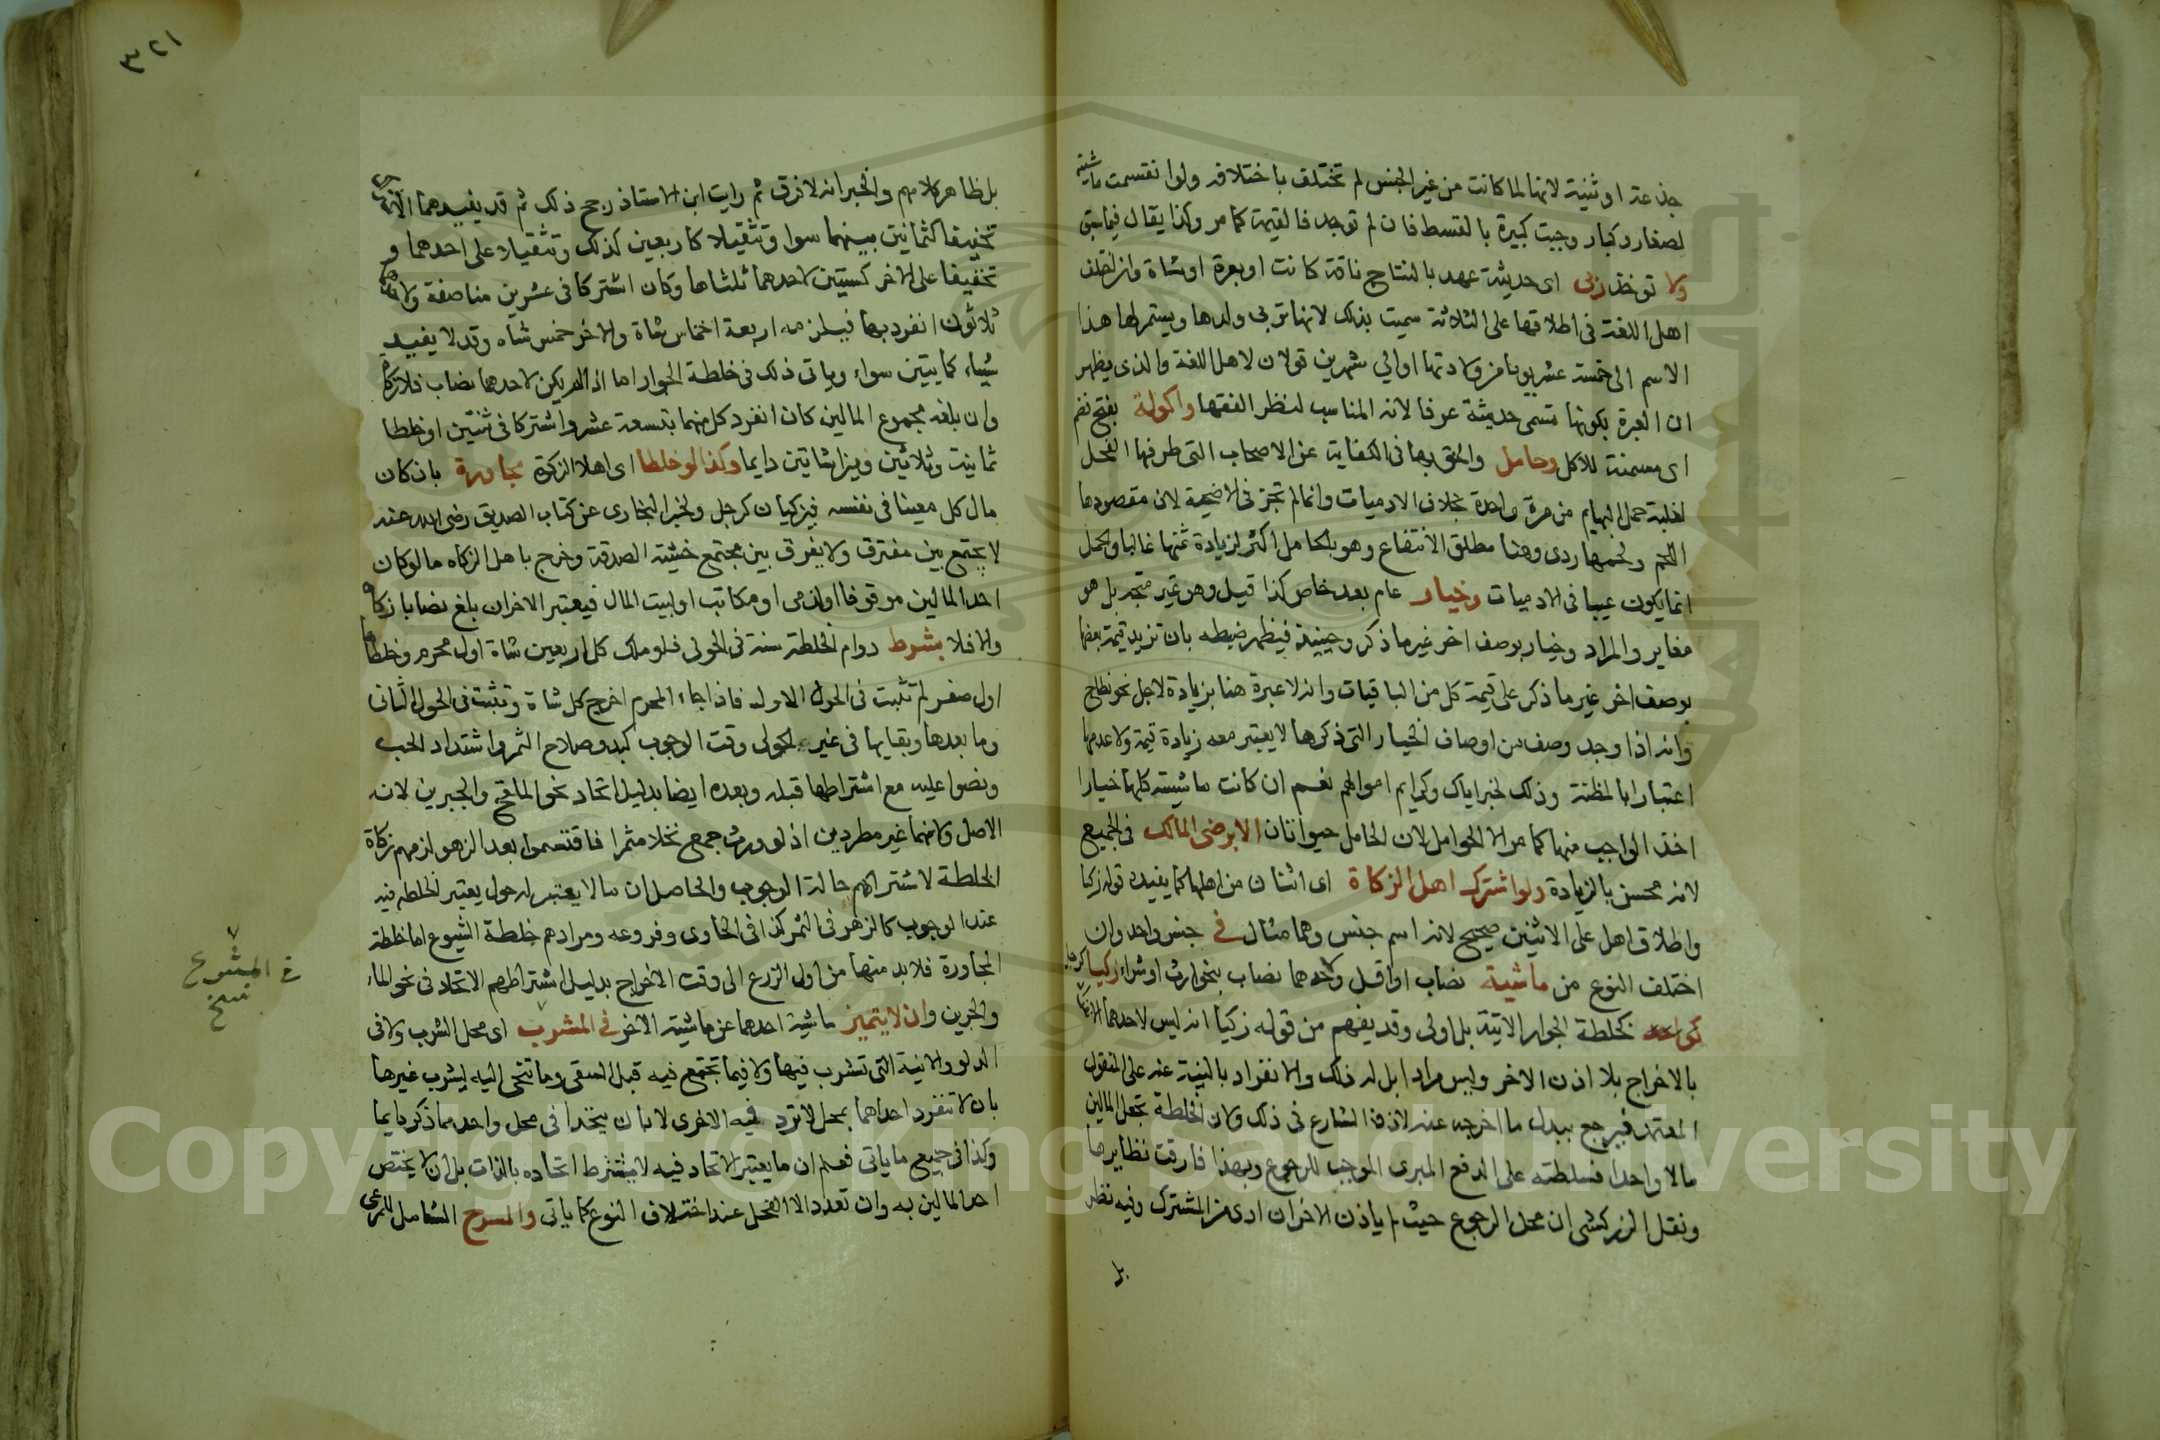 جذعة او ثنية لانها لما كانت من غير الجنس لم تختلف باختلافه ولو انقسمت ماشيته
لصغار وكبار وجبت كبيرة بالقسط فان لم توجد فالقيمة كما مر وكذا يقال فيما سبق
ولا توخذ ربى اى حديثة عهد بالنتاج ناقة كانت او بقرة او شاة وان اختلف
اهل اللغة فى اطلاقها على الثلاثة سميت بذلك لانها تربى ولدها ويستمر لها هذا
الاسم الى خمسة عشر يوما من ولادتها او الي شهرين قولان لاهل اللغة والذى يظهر
ان العبرة بكونها تسمى حديثة عرفا لانه المناسب لنظر الفقها واكولة بفتح فضم
اى مسمنة للاكل وحامل والحق بها فى الكفاية عن الاصحاب التى طرقها الفحل
لغلبة حمل البهايم من مرة واحدة بخلاف الادميات وانما لم تجز فى الاضحية لان مقصودها
اللحم ولحمها ردى وهنا مطلق الانتفاع وهو بالحامل اكثر لزيادة ثمنها غالبا والحمل
انما يكون عيبا فى الادميات وخيار عام بعد خاص كذا قيل وهو غير متجه بل هو
مغاير والمراد وخيار بوصف اخر غير ما ذكر وحينيذ فيظهر ضبطه بان تزيد قيمة بعضها
بوصف اخر غير ما ذكر على قيمة كل من الباقيات وانه لا عبرة هنا بزيادة لاجل نحو نطاح
وانه اذا وجد وصف من اوصاف الخيار التى ذكرها لا يعتبر معه زيادة قيمة ولا عدمها
اعتبارا بالمظنة وذلك لخبر اياك وكرايم اموالهم نعم ان كانت ماشيته كلها خيارا
اخذ الواجب منها كما مر الا الحوامل لان الحامل حيوانان الا برضى المالك فى الجميع
لانه محسن بالزيادة ولو اشترك اهل الزكاة اى اثنان من اهلها كما يفيده قوله زكيا
واطلاق اهل على الاثنين صحيح لانه اسم جنس وهما مثال في جنس واحد وان
اختلف النوع من ماشية نصاب او اقل ولاحدهما نصاب بنحو ارث او شراء زكيا كرجل
كخلطة الجوار الاتية بل اولى وقد يفهم من قوله زكيا انه ليس لاحدهما الانفراد
بالاخراج بلا اذن الاخر وليس مرادا بل له ذلك والانفراد بالنية عنه على المنقول
المعتمد فيرجع ببدل ما اخرجه عنه لاذن الشارع فى ذلك ولان الخلطة تجعل المالين
مالا واحدا فسلطته على الدفع المبرى الموجب للرجوع وبهذا فارقت نظايرها
ونقل الزركشى ان محل الرجوع حيث لم ياذن الاخر ان ادى من المشترك وفيه نظر
بل
٣٢١
بل ظاهر كلامهم والخبر انه لا فرق ثم رايت ابن الاستاذ رجح ذلك ثم قد يفيدهما الاشتراك
تخفيفا كثمانين بينهما سوا وتثقيلا كاربعين كذلك وتثقيلا على احدهما و
تخفيفا على الاخر كستين لاحدهما ثلثاها وكان اشتركا فى عشرين مناصفة ولاحدهما
ثلاثون انفرد بها فيلزمه اربعة اخماس شاة والاخر خمس شاه وقد لا يفيد
شياء كمايتين سواء وياتى ذلك فى خلطة الجوار اما اذا لم يكن لاحدهما نصاب فلا زكاة
وان بلغه مجموع المالين كان انفرد كل منهما بتسعة عشر واشتركا فى ثنتين او خلطا
ثمانية وثلاثين وميزا شاتين دايما وكذا لو خلطا اى اهلا الزكاة مجاورة بان كان
مال كل معينا فى نفسه فيزكيان كرجل ولخبر البخارى عن كتاب الصديق رضى الله عنه
لا يجتمع بين مفترق ولا يفرق بين مجتمع خشية الصدقة وخرج باهل الزكاه ما لو كان
احد المالين موقوفا او لذمى او مكاتب او لبيت المال فيعتبر الاخر ان بلغ نصابا زكاه
والا فلا بشرط دوام الخلطة سنة فى الحولى فلو ملك كل اربعين شاة اول محرم وخلطاها
اول صفر لم تثبت فى الحول الاول فاذا جاء المحرم اخرج كل شاة وتثبت فى الحول الثانى
وما بعدها وبقايها فى غير الحولى وقت الوجوب كبدو صلاح الثمر واشتداد الحب
ونصوا عليه مع اشتراطها قبله وبعده ايضا بدليل اتحاد نحو الملقح والجرين لانه
الاصل ولانهما غير مطردين اذ لو ورث جمع نخلا مثمرا فاقتسموا بعد الزهو لزمهم زكاة
الخلطة لاشتراكهم حالة الوجوب والحاصل ان ما لا يعتبر له حول يعتبر الخلطه فيه
عند الوجوب كالزهو فى الثمر كذا فى الحاوى وفروعه ومرادهم خلطة الشيوع اما خلطة
المجاورة فلا بد منها من اول الزرع الى وقت الاخراج بدليل اشتراطهم الاتحاد فى نحو الماء
والجرين وان لا يتميز ماشية احدهما عن ماشية الاخر في المشرب اى محل الشرب ولا فى
الدلو والانية التى تشرب فيها ولا فيما تجتمع فيه قبل السقى وما تنحى اليه ليشرب غيرها
بان لا تنفرد احداهما بمحل لا ترد فيه الاخرى لا بان يتحدا فى محل واحد مما ذكر دايما
وكذا فى جميع ما ياتى فعلم ان ما يعتبر الاتحاد فيه لا يشترط اتحاده بالذات بل ان لا يختص
احد المالين به وان تعدد الا الفحل عند اختلاف النوع كما ياتى والمسرح الشامل للمرعى
في المشرع
نسخ
Copyright © King Saud University